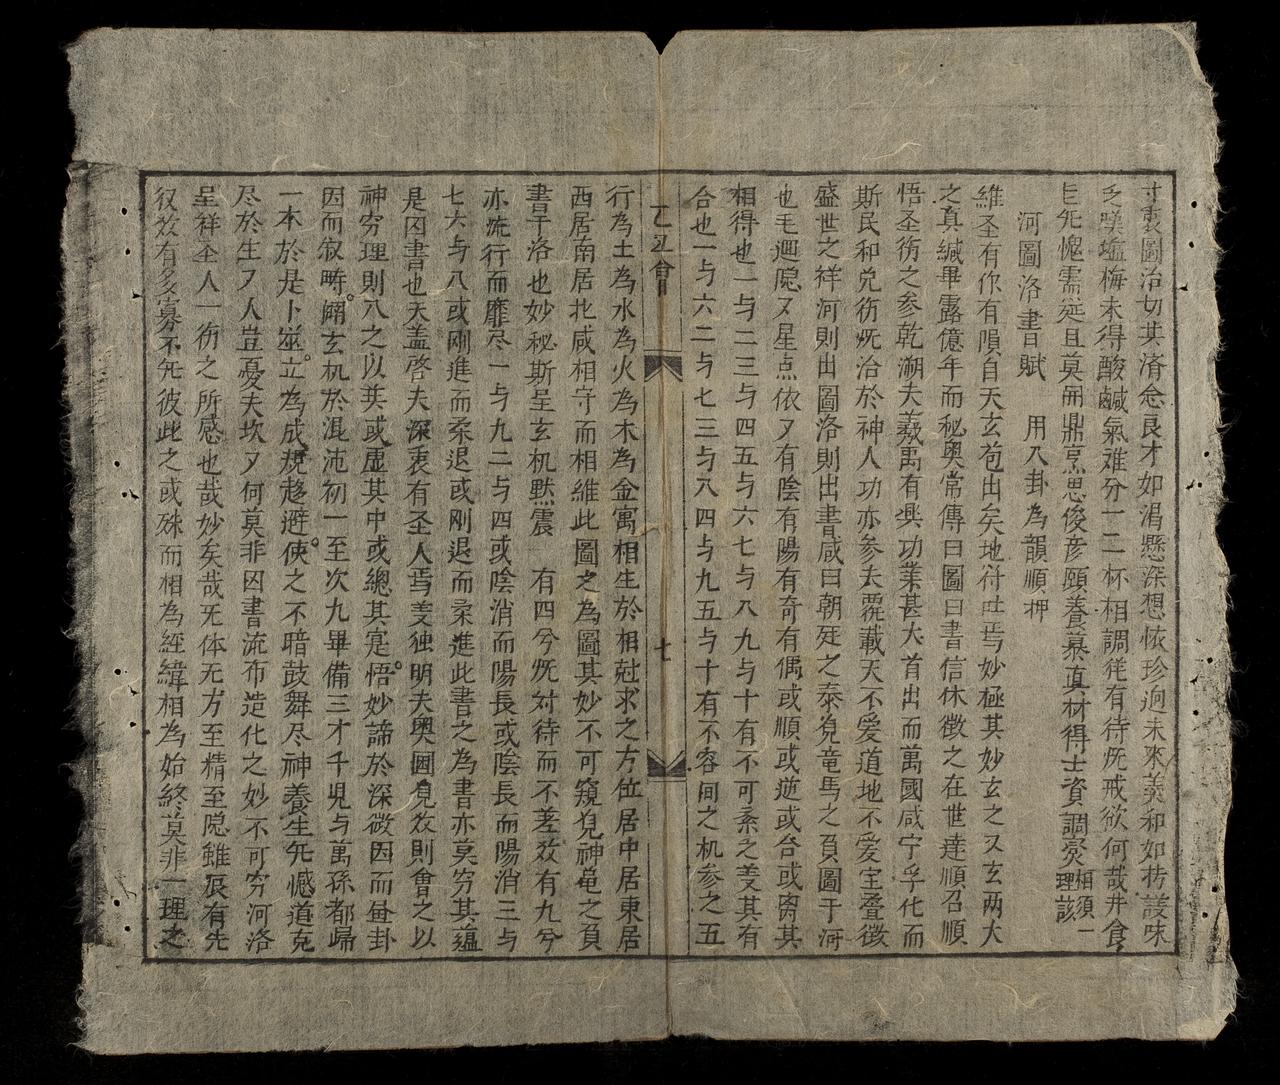 寸裏圖治切其済念良才如渴懸深想恢珍逈未來羙和如栉設味
乏嘆塩梅未得酸鹹氣难分一二杯相調徃有待既戒欲何哉井食
无愧需筵且莫開鼎烹思俊彦願養真材得士資調爕相須一理該
河圖洛書賦　用八卦為韻順押
維圣有作有開自天玄苞出矣地符吐焉妙極其妙玄之又玄兩大
之真緘畢露億年而秘奥常傳曰圖曰書信休徴之在世達順召順
悟圣衜之参乾溯夫羲禹有興功業甚大首出而萬國咸宁孚化而
斯民和兑衜既洽於神人功亦参夫覆載天不爱道地不爱宝叠徴
盛世之祥河則出圖洛則出書咸曰朝廷之泰見竜馬之負圖于河
也毛迴隐又星点依又有陰有陽有奇有偶或順或逆或合或离其
相得也一与二三与四五与六七与八九与十有不可紊之羙其有
合也一与六二与七三与八四与九五与十有不容间之机参之五
乙丑會　七
行為土為水為火為木為金寓相生於相尅求之方位居中居東居
西居南居北咸相守而相維此圖之為圖其妙不可窺見神龟之負
書于洛也妙秘斯呈玄机黙震　有四兮既対待而不差效有九兮
亦流行而靡尽一与九二与四或陰消而陽長或陰長而陽消三与
七六与八或刚進而柔退或刚退而柔進此書之為書亦莫穷其蕴
是因書也天盖啓夫深衷有圣人焉羙独明夫奥圃見效則會之以
神穷理則八之以英或虚其中或總其寔悟妙諦於深微因而畫卦
因而叙畴闢玄机於混沌初一至次九畢備三才千児与萬孫都歸
一本於是卜筮立為成規趍避使之不暗鼓舞尽神養生无憾道克
尽於生又人豈憂夫坎又何莫非因書流布造化之妙不可穷河洛
呈祥圣人一衜之所感也哉妙矣哉无体无方至精至隐雖辰有先
後效有多寡不无彼此之或殊而相為經緯相為始終莫非一理之